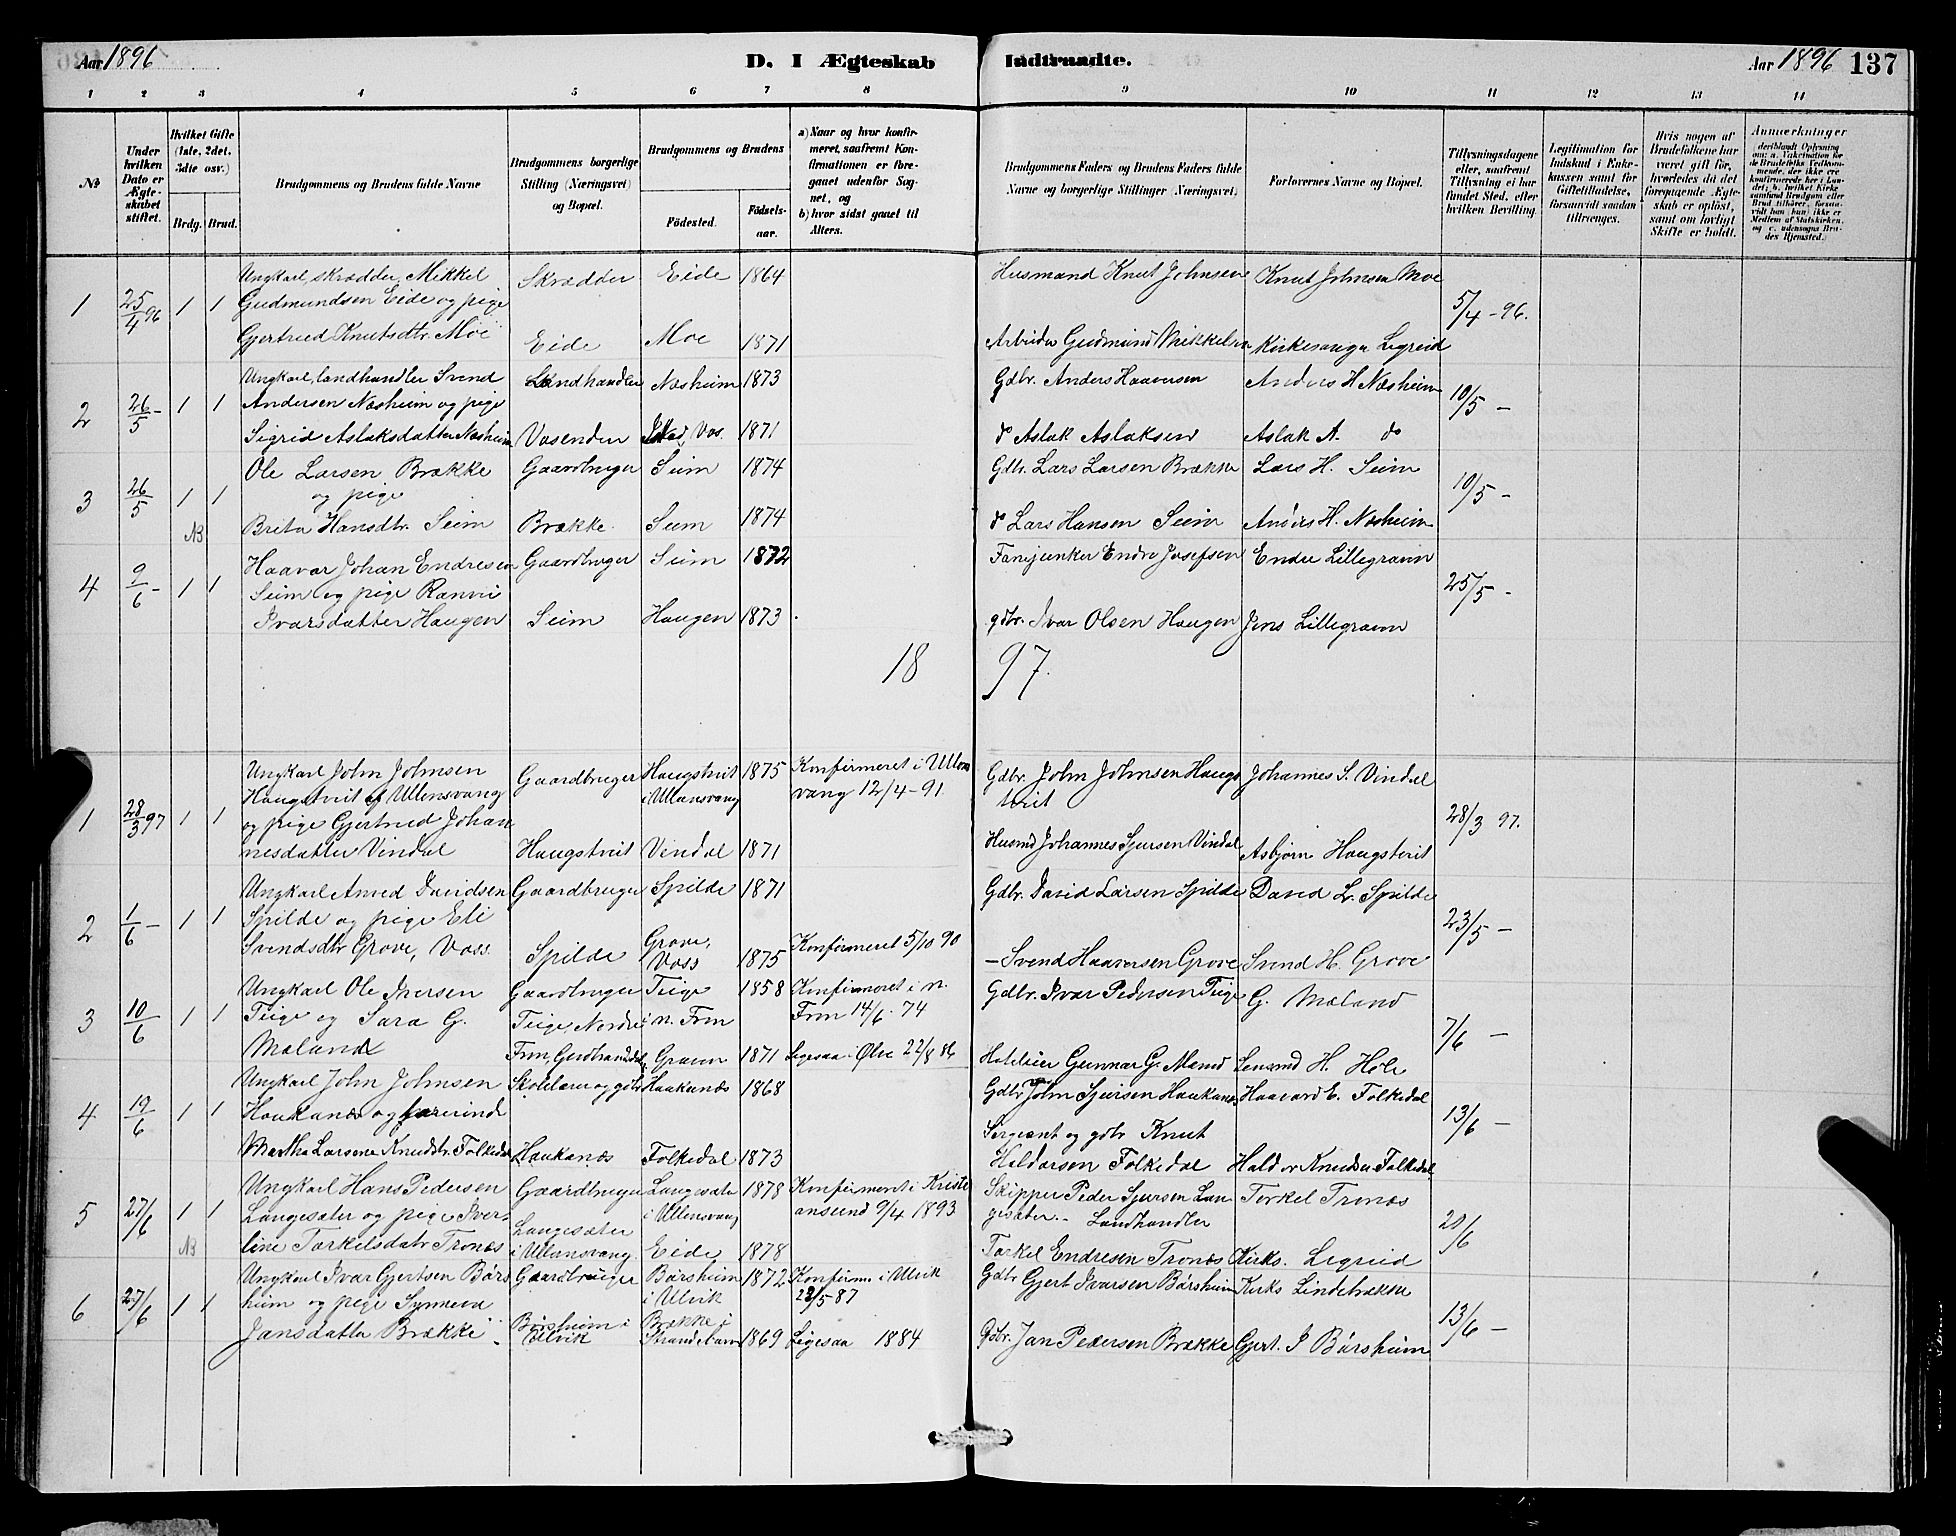 Aar 1896
D. I Ægteskab Indtraadte.
Aar 1896 137
1 2 3 4 5 6 7 8 9 10 11 12 13 14
№
Under hvilken Dato er Ægteskabet stiftet.
Hvilket Gifte (1ste, 2det, 3dte osv.)
Brdg. Brud.
Brudgommens og Brudens fulde Navne
Brudgommens borgerlige Stilling (Næringsvei) og Bopæl.
Brudgommens og Brudens
Födested.
Födselsaar.
a) Naar og hvor konfirmeret, saafremt Konfirmationen er foregaaet udenfor Sognet, og
b) hvor sidst gaaet til Alters.
Brudgommens Faders og Brudens Faders fulde Navne og borgerlige Stillinger (Næringsvei)
Forlovernes Navne og Bopæl.
Tillysningsdagene eller, saafremt Tillysning ei har fundet Sted, efter hvilken Bevilling.
Legitimation for Indskud i Enkekassen samt for Giftetilladelse, forsaavidt saadan tiltrænges.
Hvis nogen af Brudefolkene har været gift för, hvorledes da det foregaaende Ægteskab er oplöst, samt om lovligt Skifte er holdt.
Anmerkninger
(deriblandt Oplysning om: a. Vakcination for de Brudefolks Vedkommende, der ikke ere konfirmerede her i Landet; b. hvilket Kirkesamfund Brudgom eller Brud tilhörer, forsaavidt han (hun) ikke er Medlem af Statskirken, og c. udensogns Brudes Hjemsted.)
1 25/4 96 1 1
Ungkarl, skrædder, Mikkel Skrædder Eide 1864 Husmand Knut Johnsen Knut Johnsen Moe
Gudmundsen Eide og pige 5/4 - 96.
Gjertrud Knutsdtr. Moe Eide Moe 1871 Arbeider Gudmund Mikkelsen Kirkesanger Legreid
2 26/5 - 1 1
Ungkarl, landhandler Svend Landhandler Næsheim 1873 Gdbr. Anders Haaversen Anders H Næsheim
Andersen Næsheim og pige 10/5 -
Sigrid Aslaksdatter Næsheim Vasenden Vos. 1871 do Aslak Aslaksen Aslak A. do
3 26/5 1 1
Ole Larsen Brække Gaardbruger Seim 1874 Gdbr. Lars Larsen Brække Lars H. Seim
og pige 10/5 -
NB Brita Hansdtr. Seim Brække Seim 1874 do Lars Hansen Seim Anders H. Næsheim
4 9/6 - 1 1
Haavar Johan Endresen Gaardbruger Seim 1872 Fanejunker Endre Josefsen Endre Lillegraven
Seim og pige Ranvei 25/5 -
Ivarsdatter Haugen Seim Haugen 1873 gdbr. Ivar Olsen Haugen Jens Lillegraven
18 97.
1 28/3 97 1 1
Ungkarl John Johnsen Gaardbruger Haugstvit 1875 Konfirmeret i Ullens Gdbr. John Johnsen Haugs Johannes S. Vindal
Haugstveit af Ullensvang i Ullensvang vang 12/4 - 91 tvit
og pige Gjertrud Johan 28/3 97.
nesdatter Vindal Haugstvit Vindal 1871 Husmd Johannes Sjursen Vindal Asbjørn Haugstvit
2 1/6 - 1 1
Ungkarl Anved Davidsen Gaardbruger Spilde 1871 Gdbr. David Larsen Spilde David L. Spilde
Spilde og pige Eli 23/5 -
Svendsdtr Grove, Voss. Spilde Grove, Voss 1875 Konfirmeret 5/10 90 - Svend Haaversen Grove Svend H. Grove
3 10/6 1 1
Ungkarl Ole Iversen Gaardbruger Teige 1858 Konfirmeret i n. Gdbr. Ivar Pedersen Teige G. Mæland
Teige og Sara G. Teige, Nordre i n. Fron Fron 14/6 - 74 7/6 -
Mæland Fron, Gudbrandsdal Graven 1871 Ligesaa i Ølve 22/8 86 Hotelier Gunnar G. Lensmd H. Hole
4 19/6 1 1
Ungkarl John Johnsen Skolelærer og gdbr Haukanæs 1868 Gdbr John Sjursen Haukanæs Haavard E. Folkedal
Haukanæs og lærerinde Sergeant og gdbr Knut 13/6 -
Martha Larsene Knudsdtr. Folkedal Haukanæs Folkedal 1873 Haldorsen Folkedal Haldor Knudsen Folkedal
5 27/6 1 1
Ungkarl Hans Pedersen Gaardbruger Langesæter 1878 Konfirmeret i Kristi Skipper Peder Sjursen Lan Torkel Tronæs
Langesæter og pige Iver- Langesæter i Ullensvang ansund 9/4 1893 gesæter. - Landhandler 20/6
NB line Torkelsdatr Tronæs i Ullensvang Eide 1878 Torkel Endresen Tronæs Kirks. Legreid
6 27/6 1 1
Ungkarl Ivar Gjertsen Børs Gaardbruger Børsheim 1872 Konfirm. i Ulvik Gdbr Gjert Ivarsen Børsheim Kirks Lindebrække
heim og pige Synneva i Ulvik 28/5 87 13/6 -
Jansdatter Brække Børsheim i Ulvik Brække i Strandebarm 1869 Ligesaa 1884 Gdbr. Jan Pedersen Brække Gjert. I Børsheim